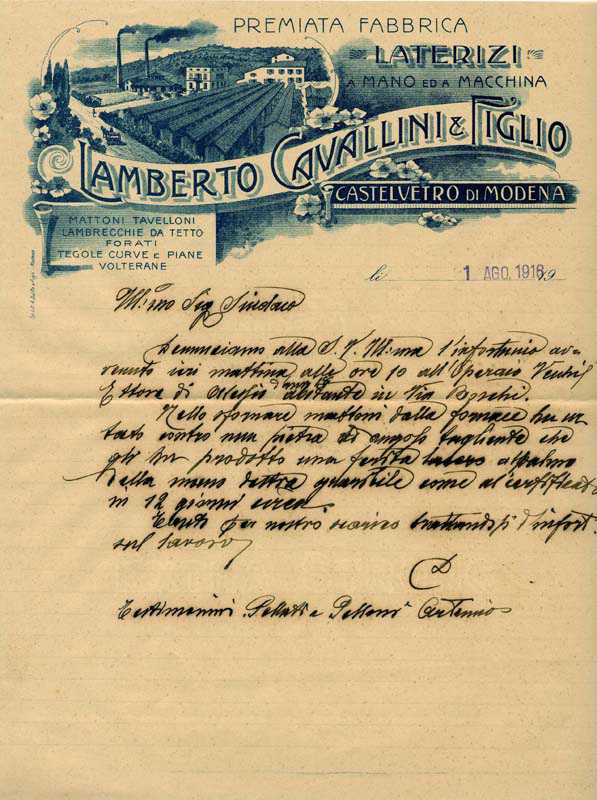 PREMIATA FABBRICA
LATERIZI
A MANO ED A MACCHINA
LAMBERTO CAVALLINI & FIGLIO
CASTELVETRO DI MODENA
MATTONI TAVELLONI
LAMBRECCHIE DA TETTO
FORATI
TEGOLE CURVE E PIANE
VOLTERANE
li 1 AGO. 1916 19
Ill:mo Sig Sindaco
Denunciamo alla S. V. Ill:ma l'infortunio av-
venuto ieri mattina alle ore 10 all'Operaio
Ettore di Alessio abitante in Via
Nello sfornare mattoni dalla fornace ha ur
tato contro una pietra di angolo tagliente che
gli ha prodotto una ferita al palmo
della mano destra guaribile come al certificato
in 12 giorni circa.
per nostro scarico trattandosi d'infort.
sul lavoro
Testimonini Pellati e Pelloni Artemio